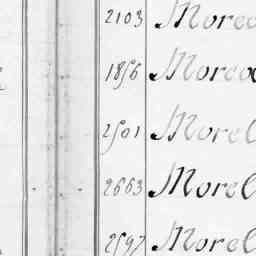 2103 Morea
1856 Morea
2501 Morel
2663 Morel
2597 Morel